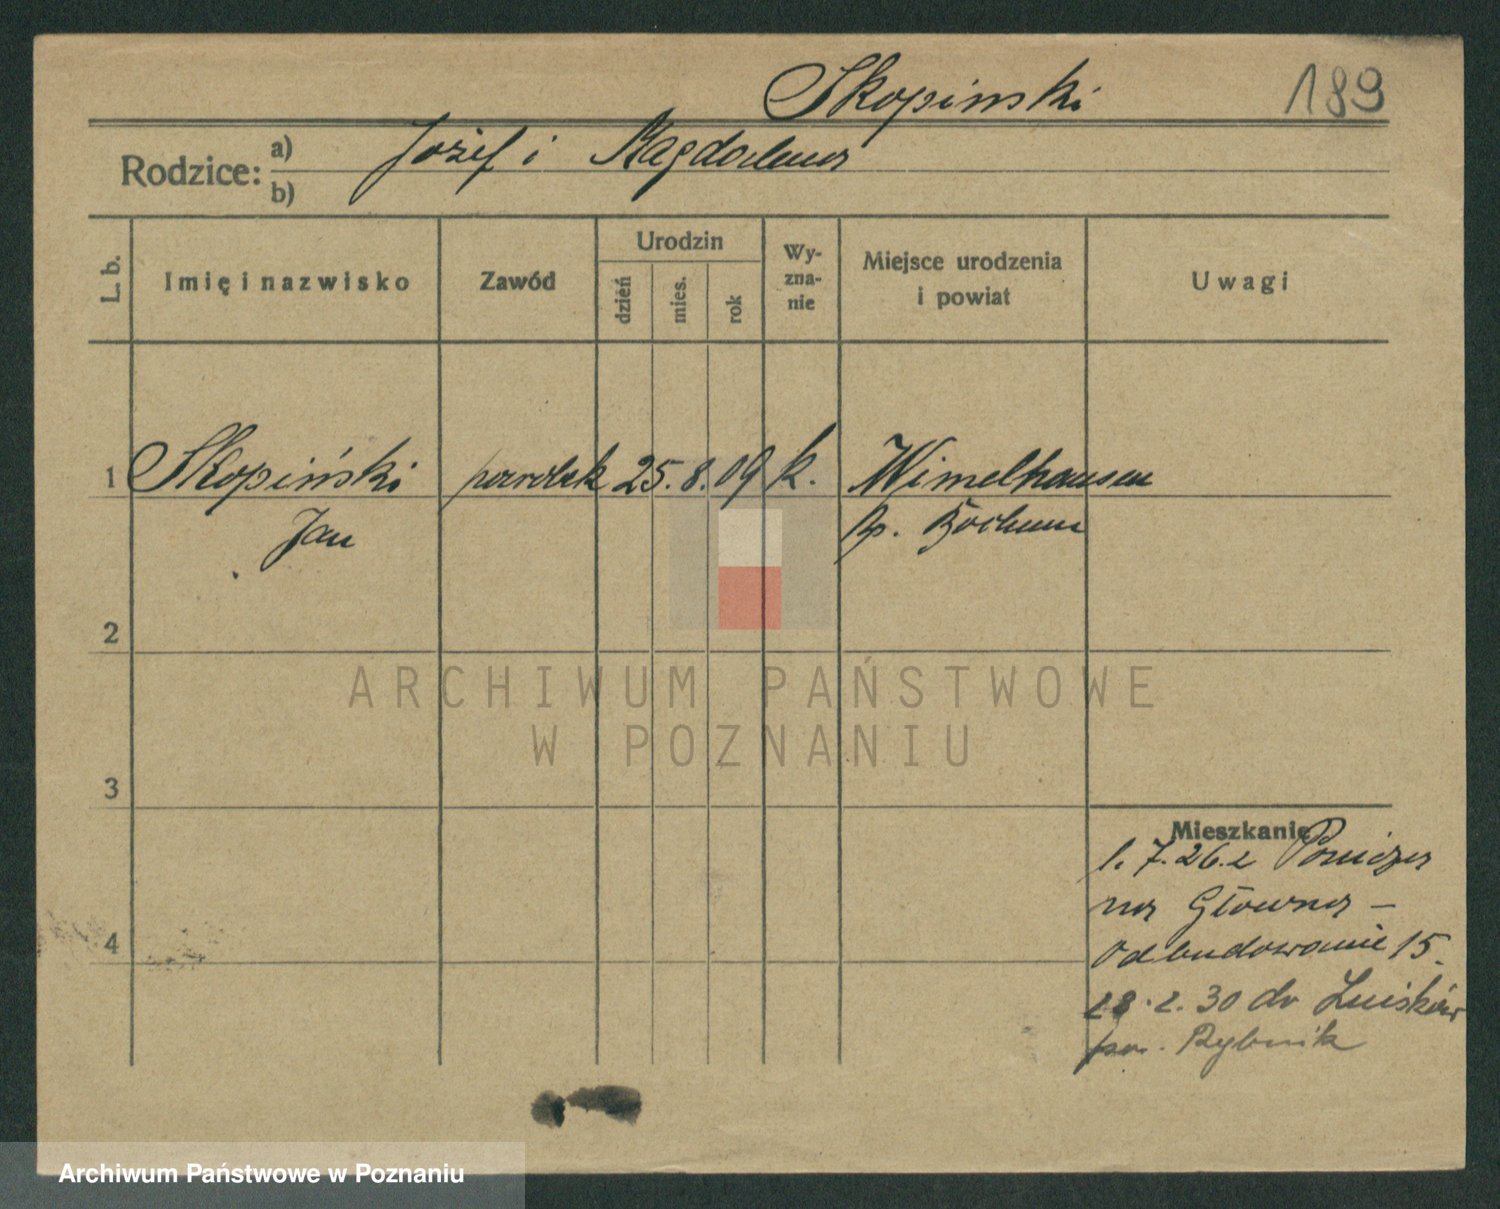 Skopinski 189
Rodzice: a) Józef i Magdalena
b)
L. b. Imię i nazwisko Zawód Urodzin dzień mies. rok Wy-zna-nie Miejsce urodzenia i powiat Uwagi
1 Skopiński parobek 25. 8. 09 k. Wimelhausen
Jan p. Bochum
2
ARCHIWUM PAŃSTWOWE
W POZNANIU
3
Mieszkanie
1. 7. 26. z
na Główna –
Odbudowanie 15.
28. 2. 30 do
pow. Rybnik
4
Archiwum Państwowe w Poznaniu